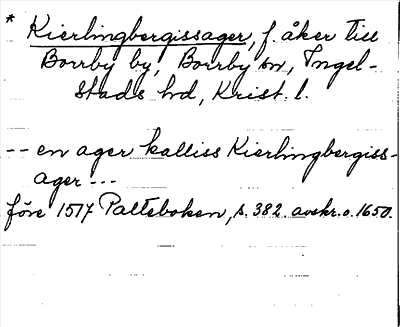 * Kierlingbergissager, f. åker till
Borrby by, Borrby sn, Ingel-
stads hd, Krist. l.
-- en ager kalliss Kierlingbergiss-
ager ---
före 1517 Palteboken, s. 382. avskr. o. 1650.